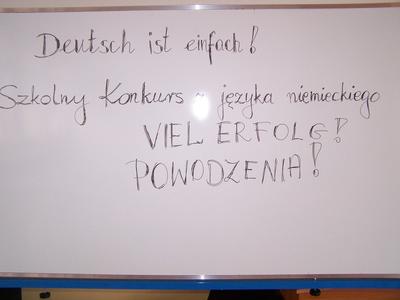 Deutsch ist einfach!
Szkolny Konkurs ~ języka niemieckiego
VIEL ERFOLG!
POWODZENIA!